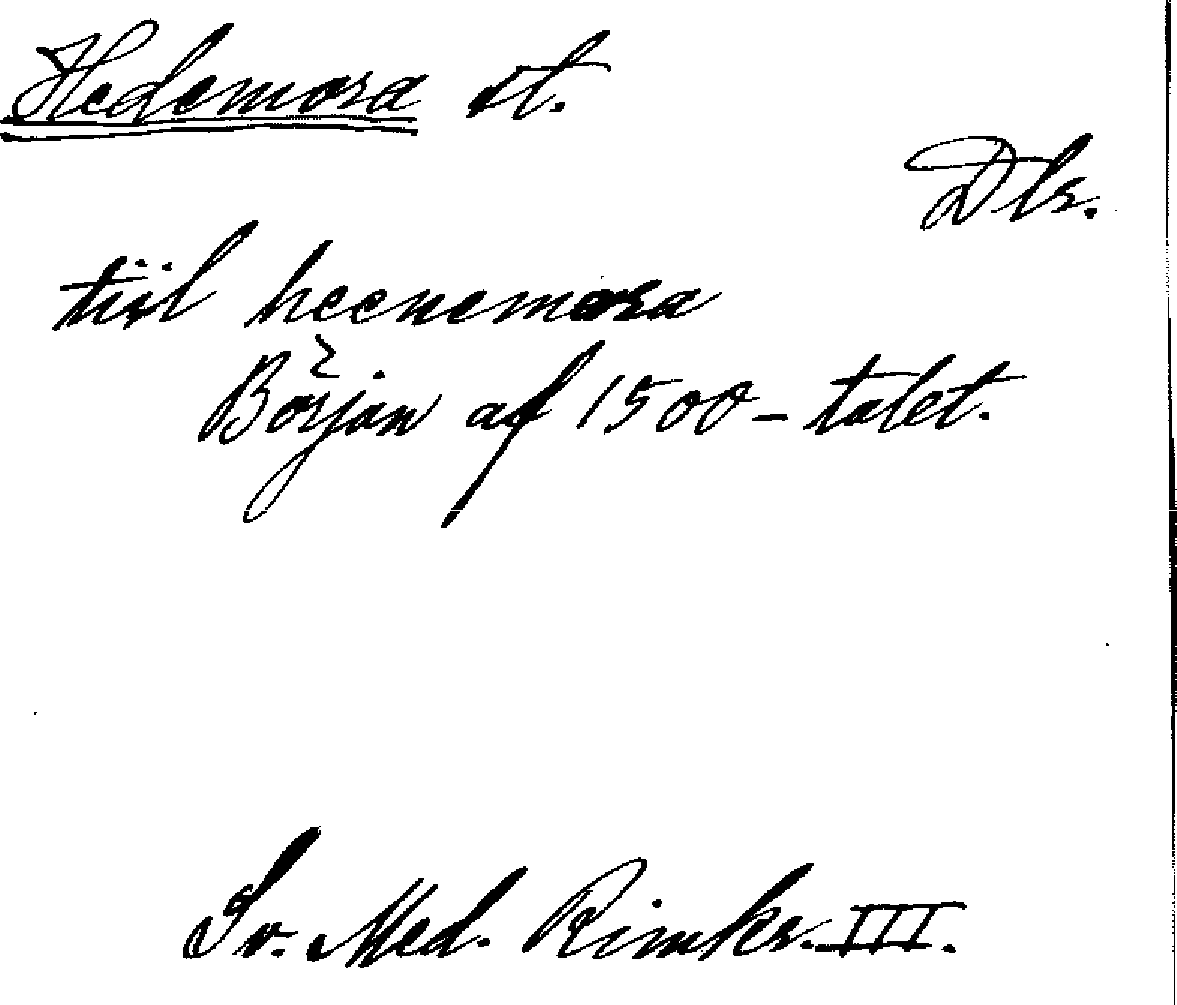 Hedemora st.
Dlr.
tiil heenemora
Början af 1500-talet.
Sv. Med. Rimkr. III.